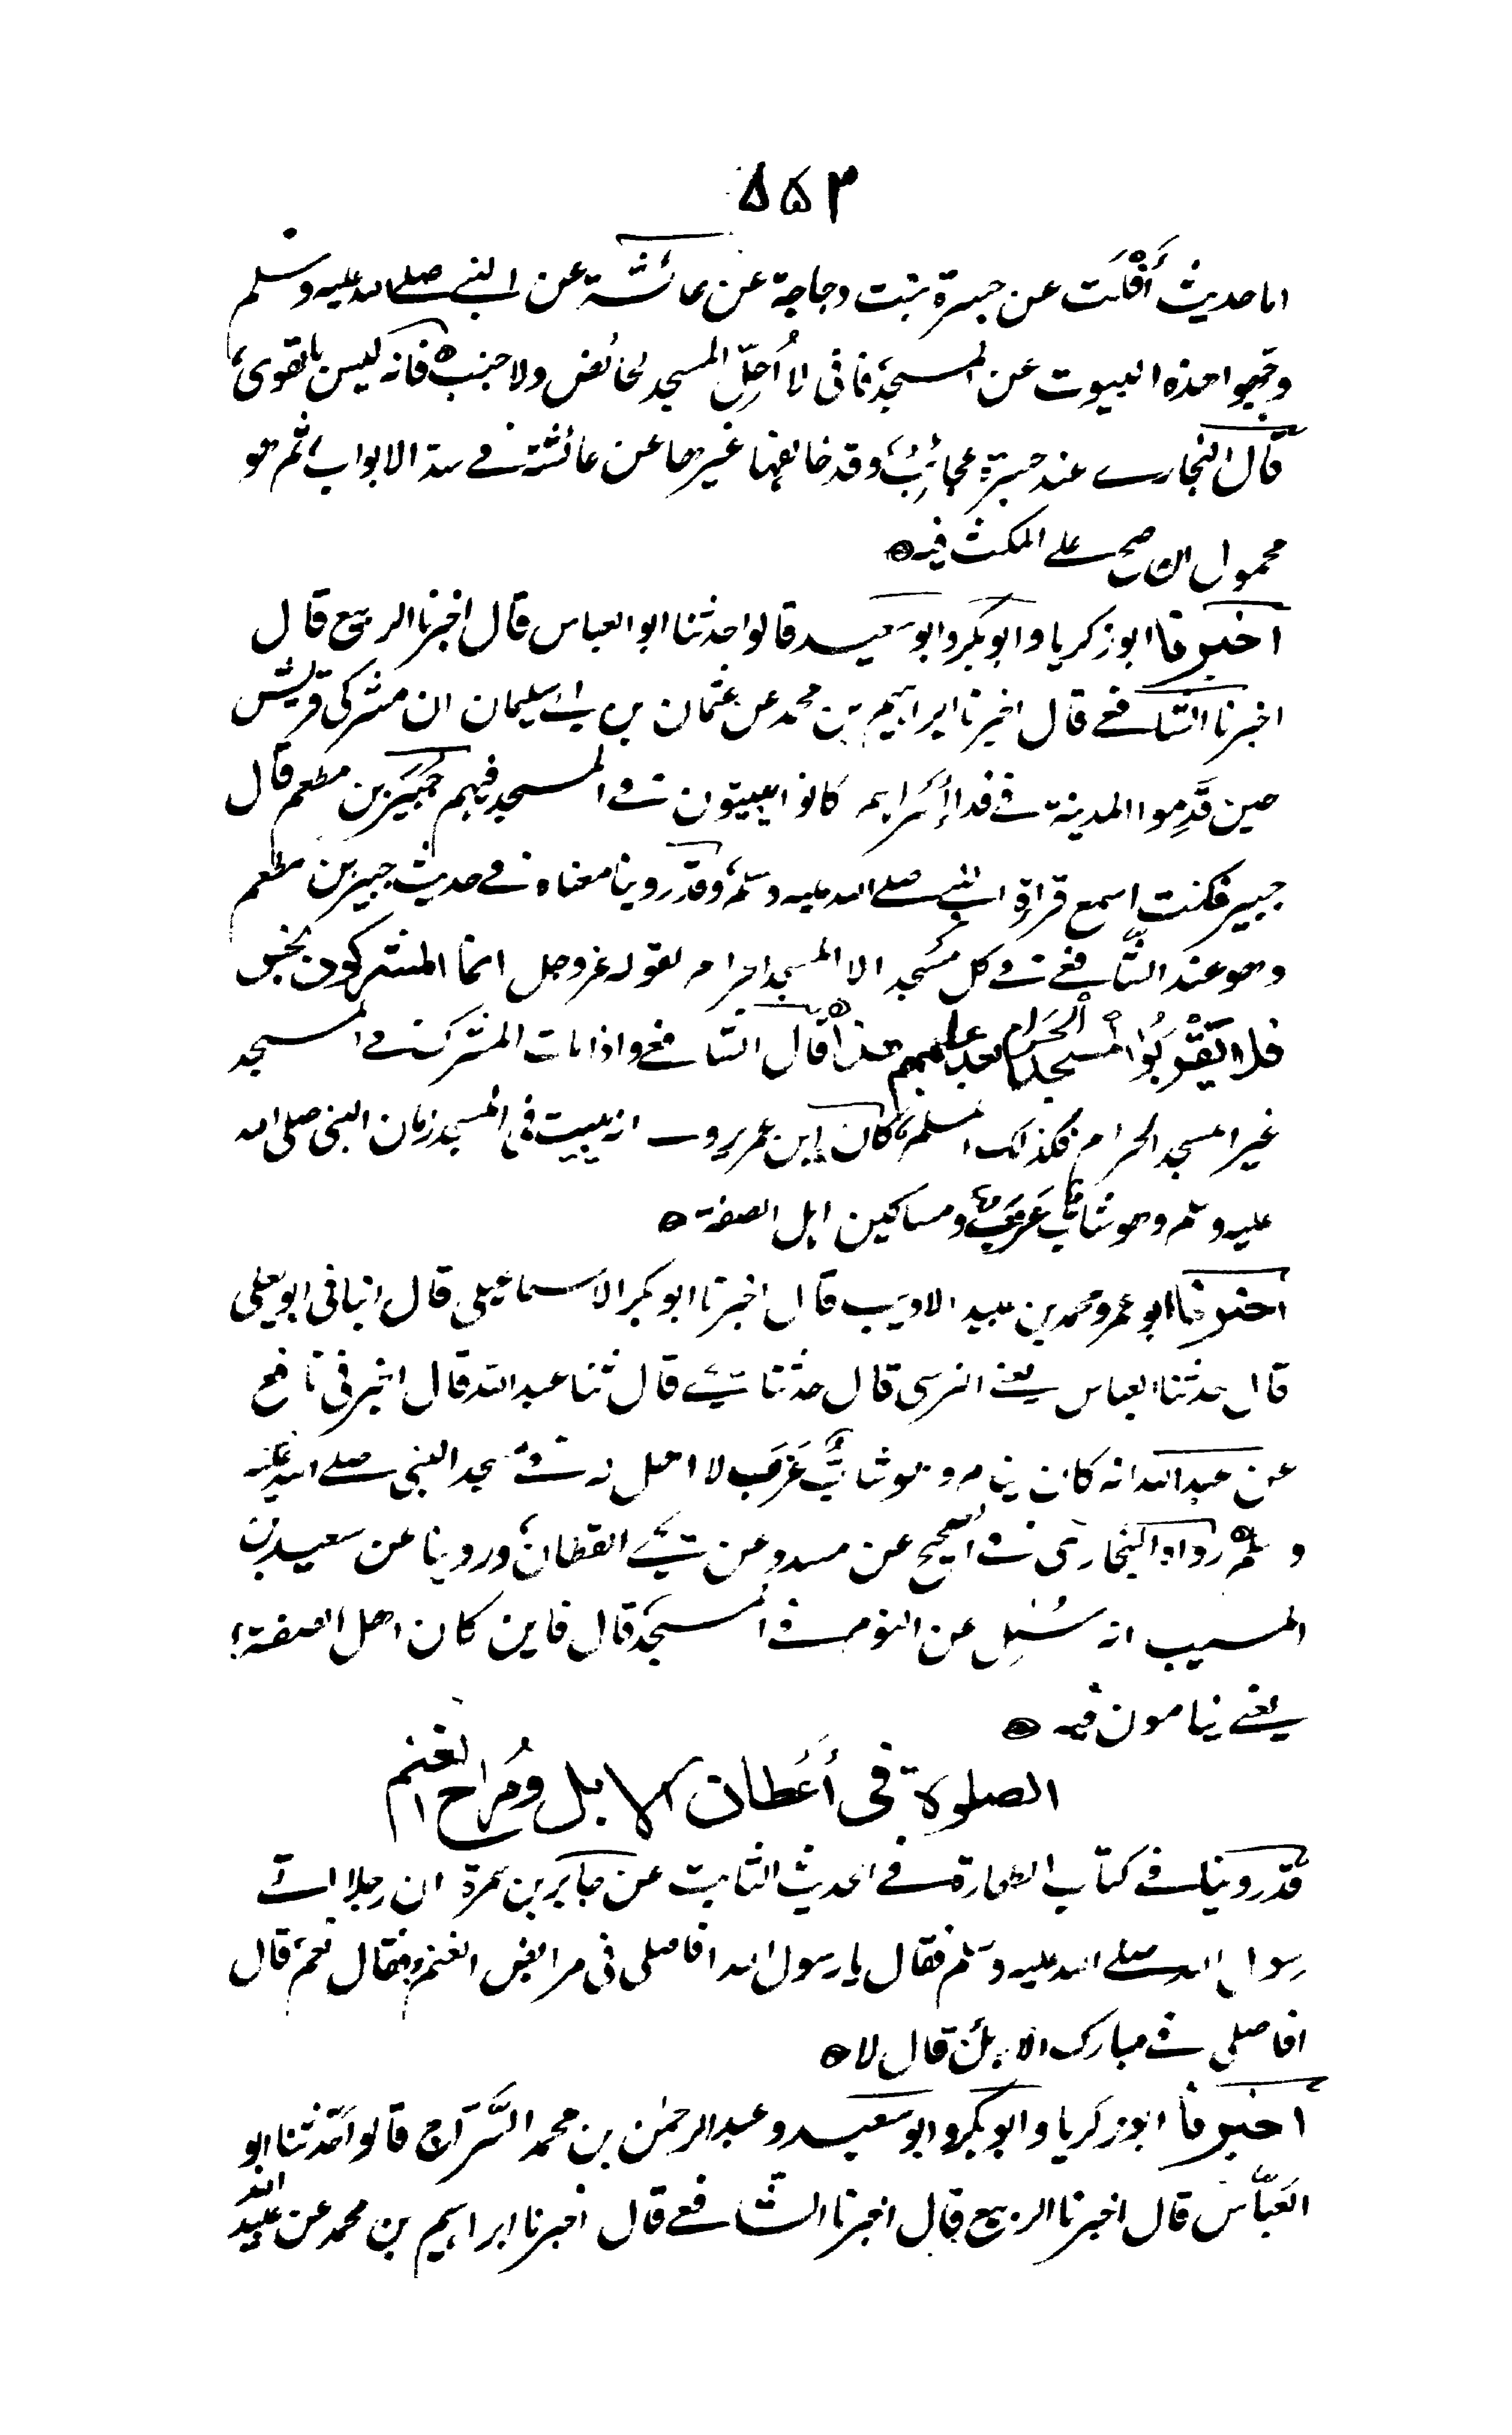 ٨٥٣
اما حديث أَفْلَت عن جسرة بنت دجاجة عن عائشة عن النبي صلى الله عليه وسلم
وجهوا هذه البيوت عن المسجد فاني لا أُحِلّ المسجد لحائض ولا جنب فانه ليس بالقوي
قال البخاري عند جسرة عجائب وقد خالفها غيرها عن عائشة في سد الابواب ثم هو
محمول ان صح على المكث فيه
اخبرنا ابو زكريا وابو بكر وابو سعيد قالوا حدثنا ابو العباس قال اخبرنا الربيع قال
اخبرنا الشافعي قال اخبرنا ابراهيم بن محمد عن عثمان بن ابي سليمان ان مشركي قريش
حين قَدِموا المدينة في فداء أسراهم كانوا يبيتون في المسجد فيهم جُبَيْر بن مطعم قال
جبير فكنت اسمع قراءة النبي صلى الله عليه وسلم وقد روينا معناه في حديث جبير بن مطعم
وهو عند الشافعي في كل مسجد الا المسجد الحرام لقوله عز وجل انما المشركون نجس
فلا يَقْرَبُوا المسجد الْحَرام بعد عامهم هذا قال الشافعي واذا بات المشرك في المسجد
غير المسجد الحرام فكذلك المسلم كان ابن عمر يروي انه يبيت في المسجد زمان النبي صلى الله
عليه وسلم وهو شاب عَزَب ومساكين اهل الصفة
اخبرنا ابو عمرو محمد بن عبد الله الاديب قال اخبرنا ابو بكر الاسماعيلي قال انباني ابو يعلى
قال حدثنا العباس يعني النرسي قال حدثنا يحيى قال ثنا عبيد الله قال اخبرني نافع
عن عبد الله انه كان ينام وهو شابٌّ عَزَب لا اهل له في مسجد النبي صلى الله عليه
وسلم رواه البخاري في الصحيح عن مسدد عن يحيى القطان وروينا عن سعيد بن
المسيب انه سُئِل عن النوم في المسجد قال فاين كان اهل الصفة
يعني ينامون فيه
الصلوة في أَعْطان الابل ومُراح الغنم
قد روينا في كتاب الطهارة في الحديث الثابت عن جابر بن سمرة ان رجلا اتى
رسول الله صلى الله عليه وسلم فقال يا رسول الله افاصلي في مرابض الغنم فقال نعم قال
افاصلي في مبارك الابل قال لا
اخبرنا ابو زكريا وابو بكر وابو سعيد وعبد الرحمٰن بن محمد السَّرّاج قالوا حدثنا ابو
العَبّاس قال اخبرنا الربيع قال اخبرنا الشافعي قال اخبرنا ابراهيم بن محمد عن عبيد الله